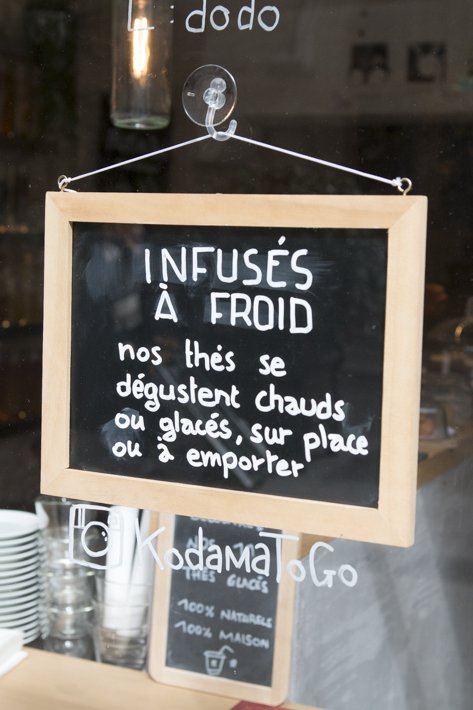 dodo
INFUSÉS
À FROID
nos thés se
dégustent chauds
ou glacés, sur place
ou à emporter
KodamaToGo
NOS
THÉS GLACÉS
100% NATURELS
100% MAISON